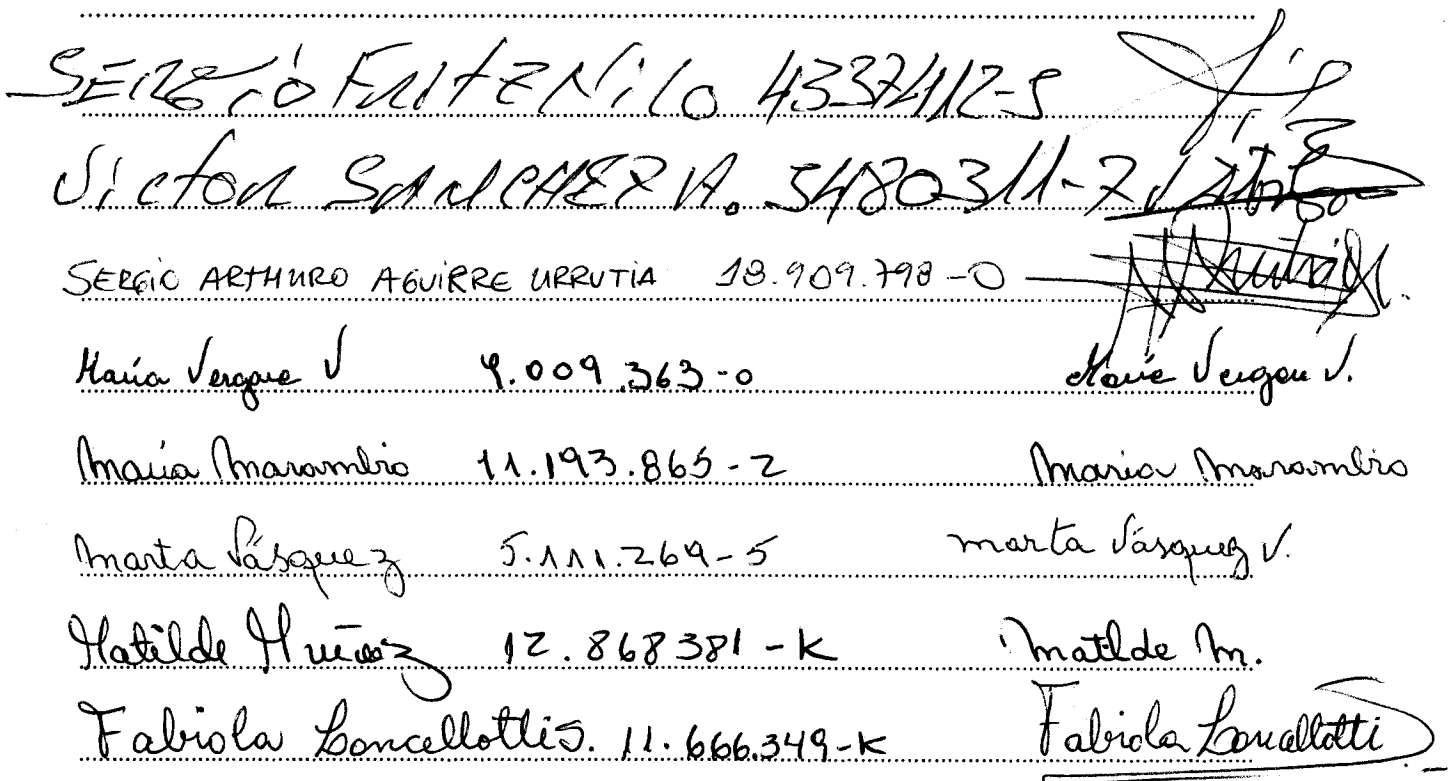 SERGIO FRITZ NILO 4337412-5
Victor SANCHEZ A. 3480311-7 Victor
SERGIO ARTHURO AGUIRRE URRUTIA 18.909.798-0
María Vergara V 4.009.363-0 María Vergara V.
María Marambio 11.193.865-2 Maria Marambio
Marta Vásquez 5.111.269-5 Marta Vásquez V.
Matilde Muñoz 12.868381-K Matilde M.
Fabiola Loncellotti S. 11.666.349-K Fabiola Loncellotti S